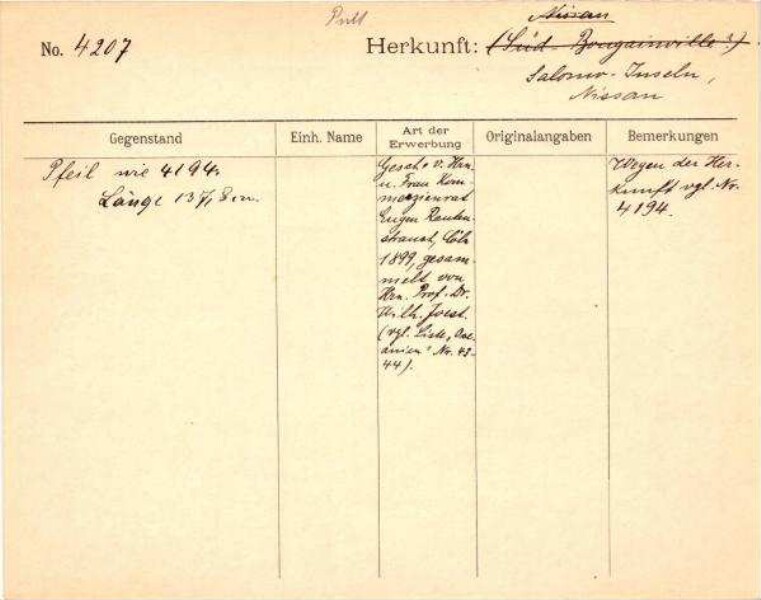 Pult
Nissan
No. 4207 Herkunft: (Süd-Bougainville?)
Salomo-Inseln,
Nissan
Gegenstand
Einh. Name
Art der
Erwerbung
Originalangaben
Bemerkungen
Pfeil wie 4194.
Länge 137,8 cm.
Gesch. v. Hrn.
u. Frau Kom-
merzienrat
Eugen Rauten-
strauch, Cöln
1899, gesam-
melt von
Hrn. Prof. Dr.
Wilh. Joest.
(vgl. Liste „Oze-
anien" Nr. 43-
44).
Wegen der Her-
kunft vgl. Nr.
4194.